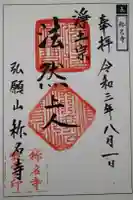 五
称名寺
奉拝 令和三年八月一一日
浄土宗
法然上人
弘願山 称名寺
称名寺